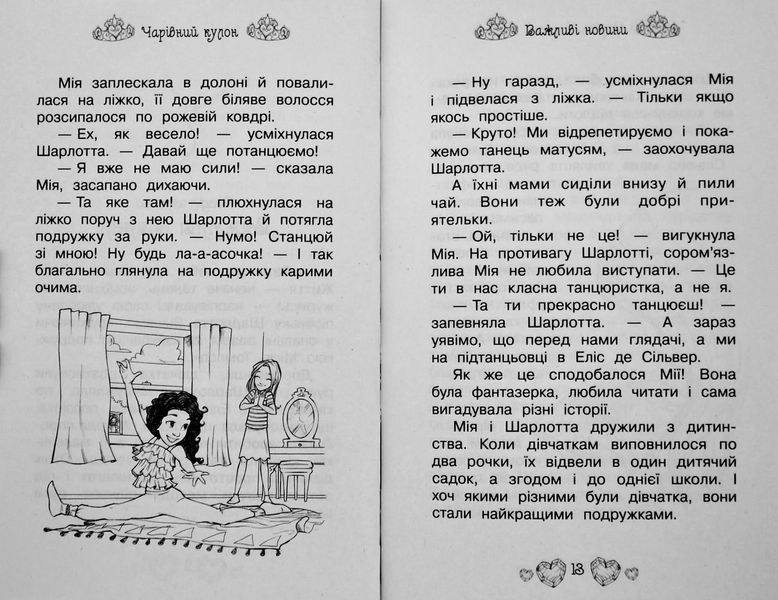 Чарівний кулон
Мія заплескала в долоні й повали-
лася на ліжко, її довге біляве волосся
розсипалося по рожевій ковдрі.
— Ех, як весело! — усміхнулася
Шарлотта. — Давай ще потанцюємо!
— Я вже не маю сили! — сказала
Мія, засапано дихаючи.
— Та яке там! — плюхнулася на
ліжко поруч з нею Шарлотта й потягла
подружку за руки. — Нумо! Станцюй
зі мною! Ну будь ла-а-асочка! — І так
благально глянула на подружку карими
очима.
Важливі новини
— Ну гаразд, — усміхнулася Мія
і підвелася з ліжка. — Тільки якщо
якось простіше.
— Круто! Ми відрепетируємо і пока-
жемо танець матусям, — заохочувала
Шарлотта.
А їхні мами сиділи внизу й пили
чай. Вони теж були добрі при-
ятельки.
— Ой, тільки не це! — вигукнула
Мія. На противагу Шарлотті, сором’яз-
лива Мія не любила виступати. — Це
ти в нас класна танцюристка, а не я.
— Та ти прекрасно танцюєш! —
запевняла Шарлотта. — А зараз
уявімо, що перед нами глядачі, а ми
на підтанцьовці в Еліс де Сільвер.
Як же це сподобалося Мії! Вона
була фантазерка, любила читати і сама
вигадувала різні історії.
Мія і Шарлотта дружили з дитин-
ства. Коли дівчаткам виповнилося по
два рочки, їх відвели в один дитячий
садок, а згодом і до однієї школи. І
хоч якими різними були дівчатка, вони
стали найкращими подружками.
13